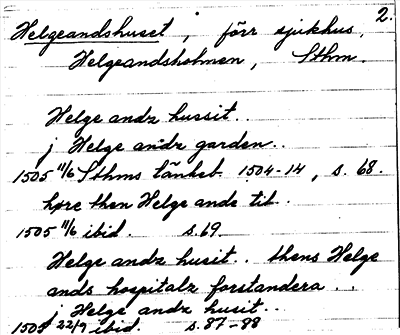 2.
Helgeandshuset, förr sjukhus,
Helgeandsholmen, Sthm.
Helge andz hussit..
j Helge andz garden..
1505 11/6 Sthms tänkeb. 1504-14, s. 68.
høre then Helge ande til..
1505 11/6 ibid. s. 69.
Helge andz husit.. thens Helge
ands hospitalz forstandera..
j Helge andz husit...
1505 22/9 ibid. s. 87-88